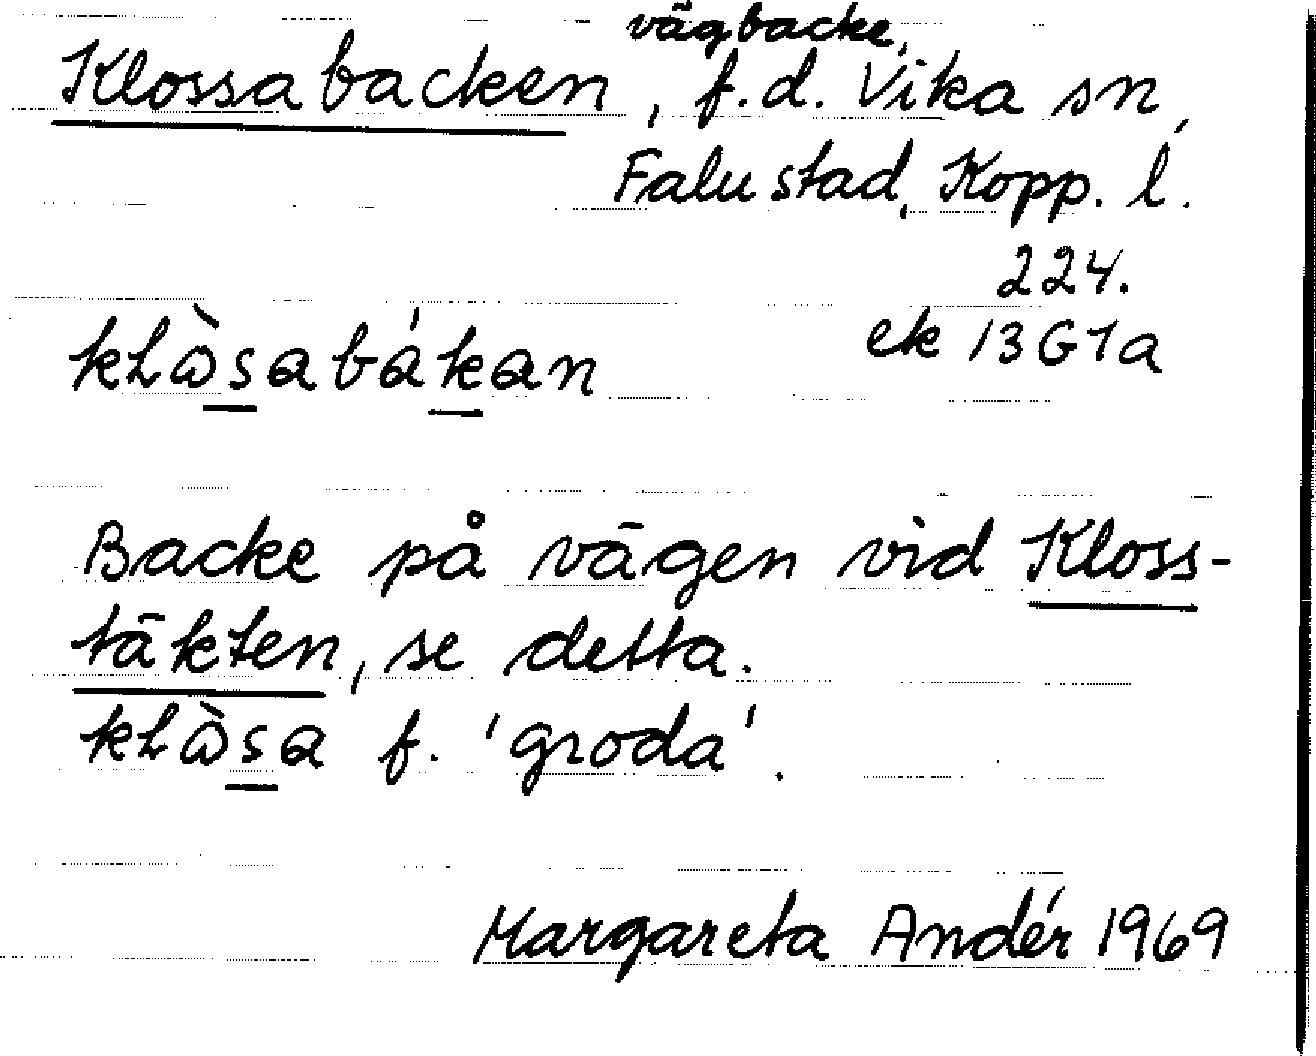 vägbacke,
Klossabacken, f.d. Vika sn,
Falu stad, Kopp. l.
224.
ek 13G1a
kLɷ̀sabákan
Backe på vägen vid Kloss-
täkten, se detta.
kLɷ̀sa f. 'groda'.
Margareta Andér 1969